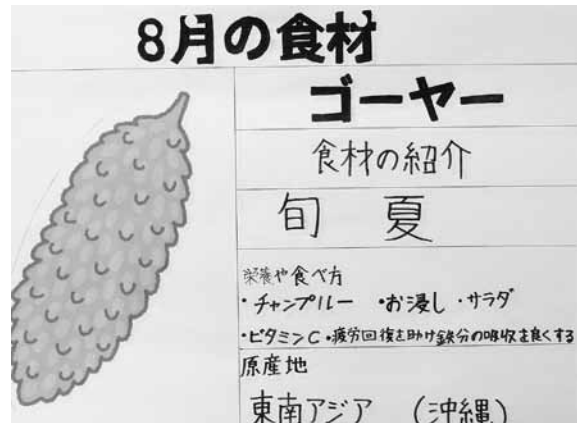 8月の食材
ゴーヤー
食材の紹介
旬 夏
栄養や食べ方
・チャンプルー ・お浸し ・サラダ
・ビタミンC ・疲労回復を助け鉄分の吸収を良くする
原産地
東南アジア (沖縄)